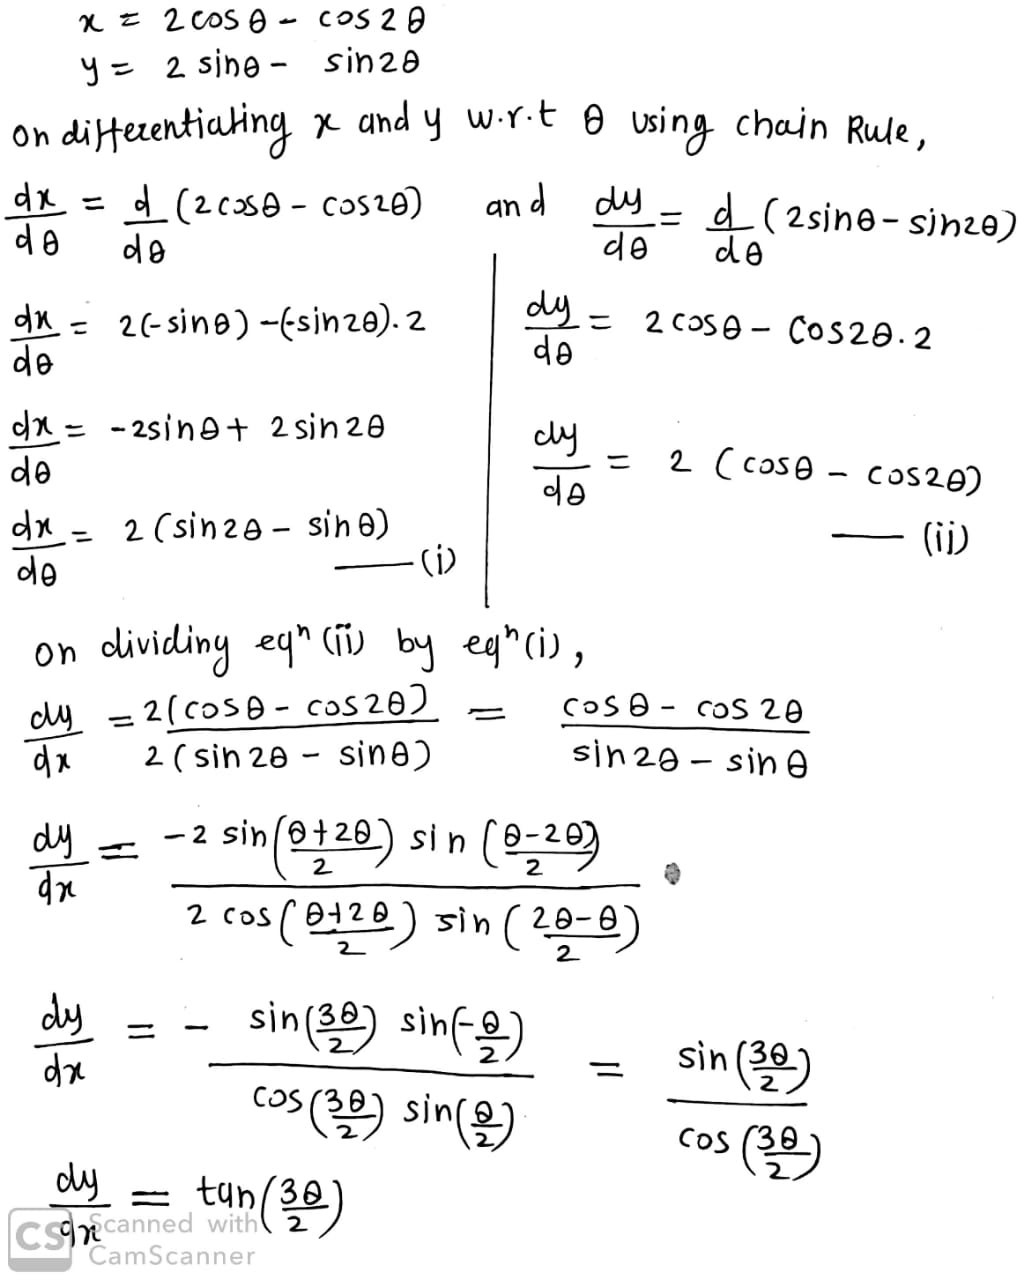 x = 2 cos θ - cos 2 θ
y = 2 sinθ - sin2θ
on differentiating x and y w.r.t θ using chain Rule,
dx/dθ = d/dθ (2cosθ - cos2θ) and dy/dθ = d/dθ (2sinθ - sin2θ)
dx/dθ = 2(-sinθ) -(-sin2θ).2
dx/dθ = -2sinθ + 2 sin 2θ
dx/dθ = 2 (sin2θ - sin θ) —(i)
dy/dθ = 2 cosθ - Cos2θ.2
dy/dθ = 2 (cosθ - cos2θ)
— (ii)
on dividing eqⁿ (ii) by eqⁿ(i),
dy/dx = 2(cosθ - cos2θ)/2(sin 2θ - sinθ) = cosθ - cos 2θ/sin 2θ - sin θ
dy/dx = -2 sin(θ+2θ/2) sin (θ-2θ/2)/2 cos(θ+2θ/2) sin (2θ-θ/2)
dy/dx = - sin(3θ/2) sin(-θ/2)/cos(3θ/2) sin(θ/2) = sin(3θ/2)/cos(3θ/2)
dy/dx = tan(3θ/2)
CS Scanned with
CamScanner